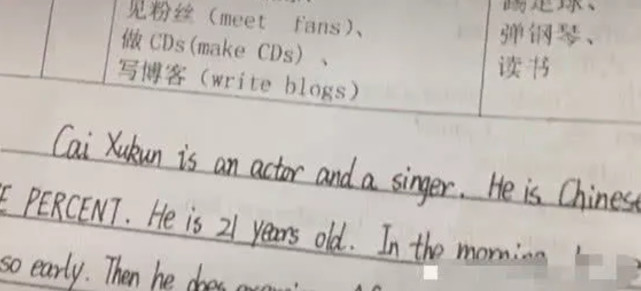 见粉丝（meet fans）、
踢足球、
做 CDs(make CDs) 、
弹钢琴、
写博客（write blogs）
读书
Cai Xukun is an actor and a singer. He is Chinese
PERCENT. He is 21 years old. In the morning
so early. Then he does